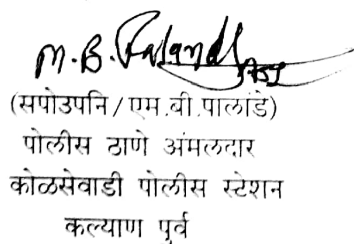 M. B. Palande
ASI
(सपोउपनि/एम.बी.पालांडे)
पोलीस ठाणे अंमलदार
कोळसेवाडी पोलीस स्टेशन
कल्याण पुर्व